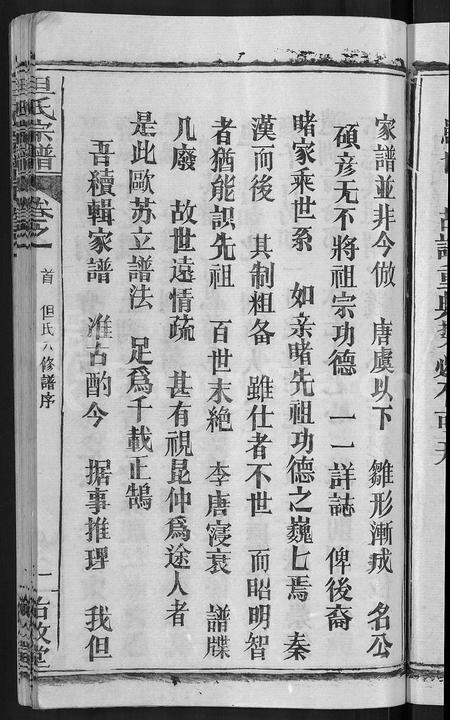 家譜並非今倣 唐虞以下 雛形漸成 名公
碩彦无不將祖宗功德 一一詳誌 俾後裔
睹家乘世系 如亲睹先祖功德之巍匕焉 秦
漢而後 其制粗备 雖仕者不世 而昭明智
者猶能識先祖 百世末绝 李唐寖衰 譜牒
几廢 故世遠情疏 甚有視昆仲爲途人者
是此歐苏立譜法 足爲千載正鵠
吾續輯家譜 准古酌今 据事推理 我但
但氏宗譜 卷之
首 但氏六修譜序
二